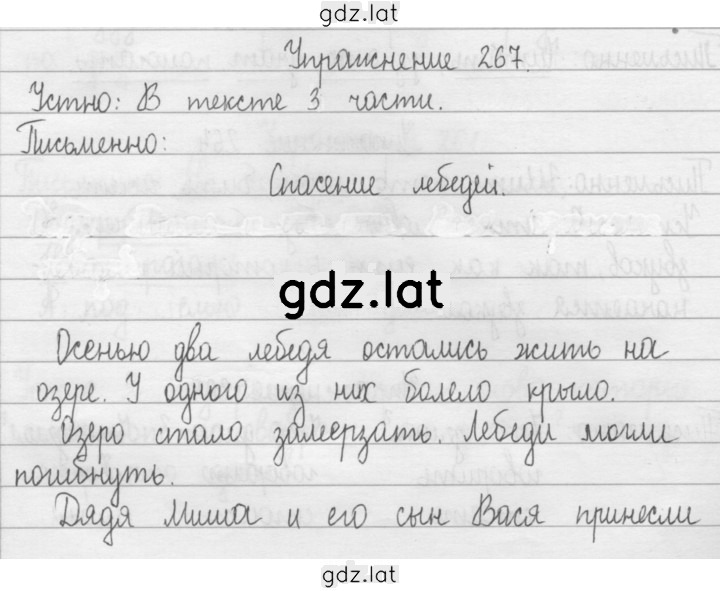 gdz.lat
Упражнение 267.
Устно: В тексте 3 части.
Письменно:
Спасение лебедей.
gdz.lat
Осенью два лебедя остались жить на
озере. У одного из них болело крыло.
Озеро стало замерзать. Лебеди могли
погибнуть.
Дядя Миша и его сын Вася принесли
gdz.lat